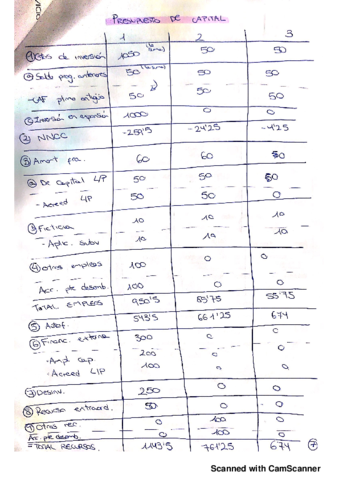 PRESUPUESTO DE CAPITAL
1 2 3
① Gtos de inversión 1050 50 50
② Saldo prog. anteriores 50 50 50
-CAF plmo antiguo 50 50 50
① Inversión en expansión 1000 0 0
② NNCC -259'5 -24'25 -4'25
③ Amort fra. 60 60 60
ⓐ De Capital L/P 50 50 50
- Acreed L/P 50 50 0
③ Ficticia 10 10 10
- Aplic. Subv 10 10 10
④ Otros empleos 100 0 0
Acr. pte desemb. 100 0 0
TOTAL EMPLEOS 950'5 85'75 55'75
⑤ Autof. 543'5 661'25 674
⑥ Financ. externa 300 0 0
- Ampl Cap 200 0
- Acreed L/P 100 0 0
⑦ Desinv. 250 0 0
⑧ Recurso extraord. 50 0 0
⑨ Otros rec. 0 100 0
Ac. pte desemb. 0 100 0
= TOTAL RECURSOS. 1143'5 761'25 674 ⑦
Scanned with CamScanner